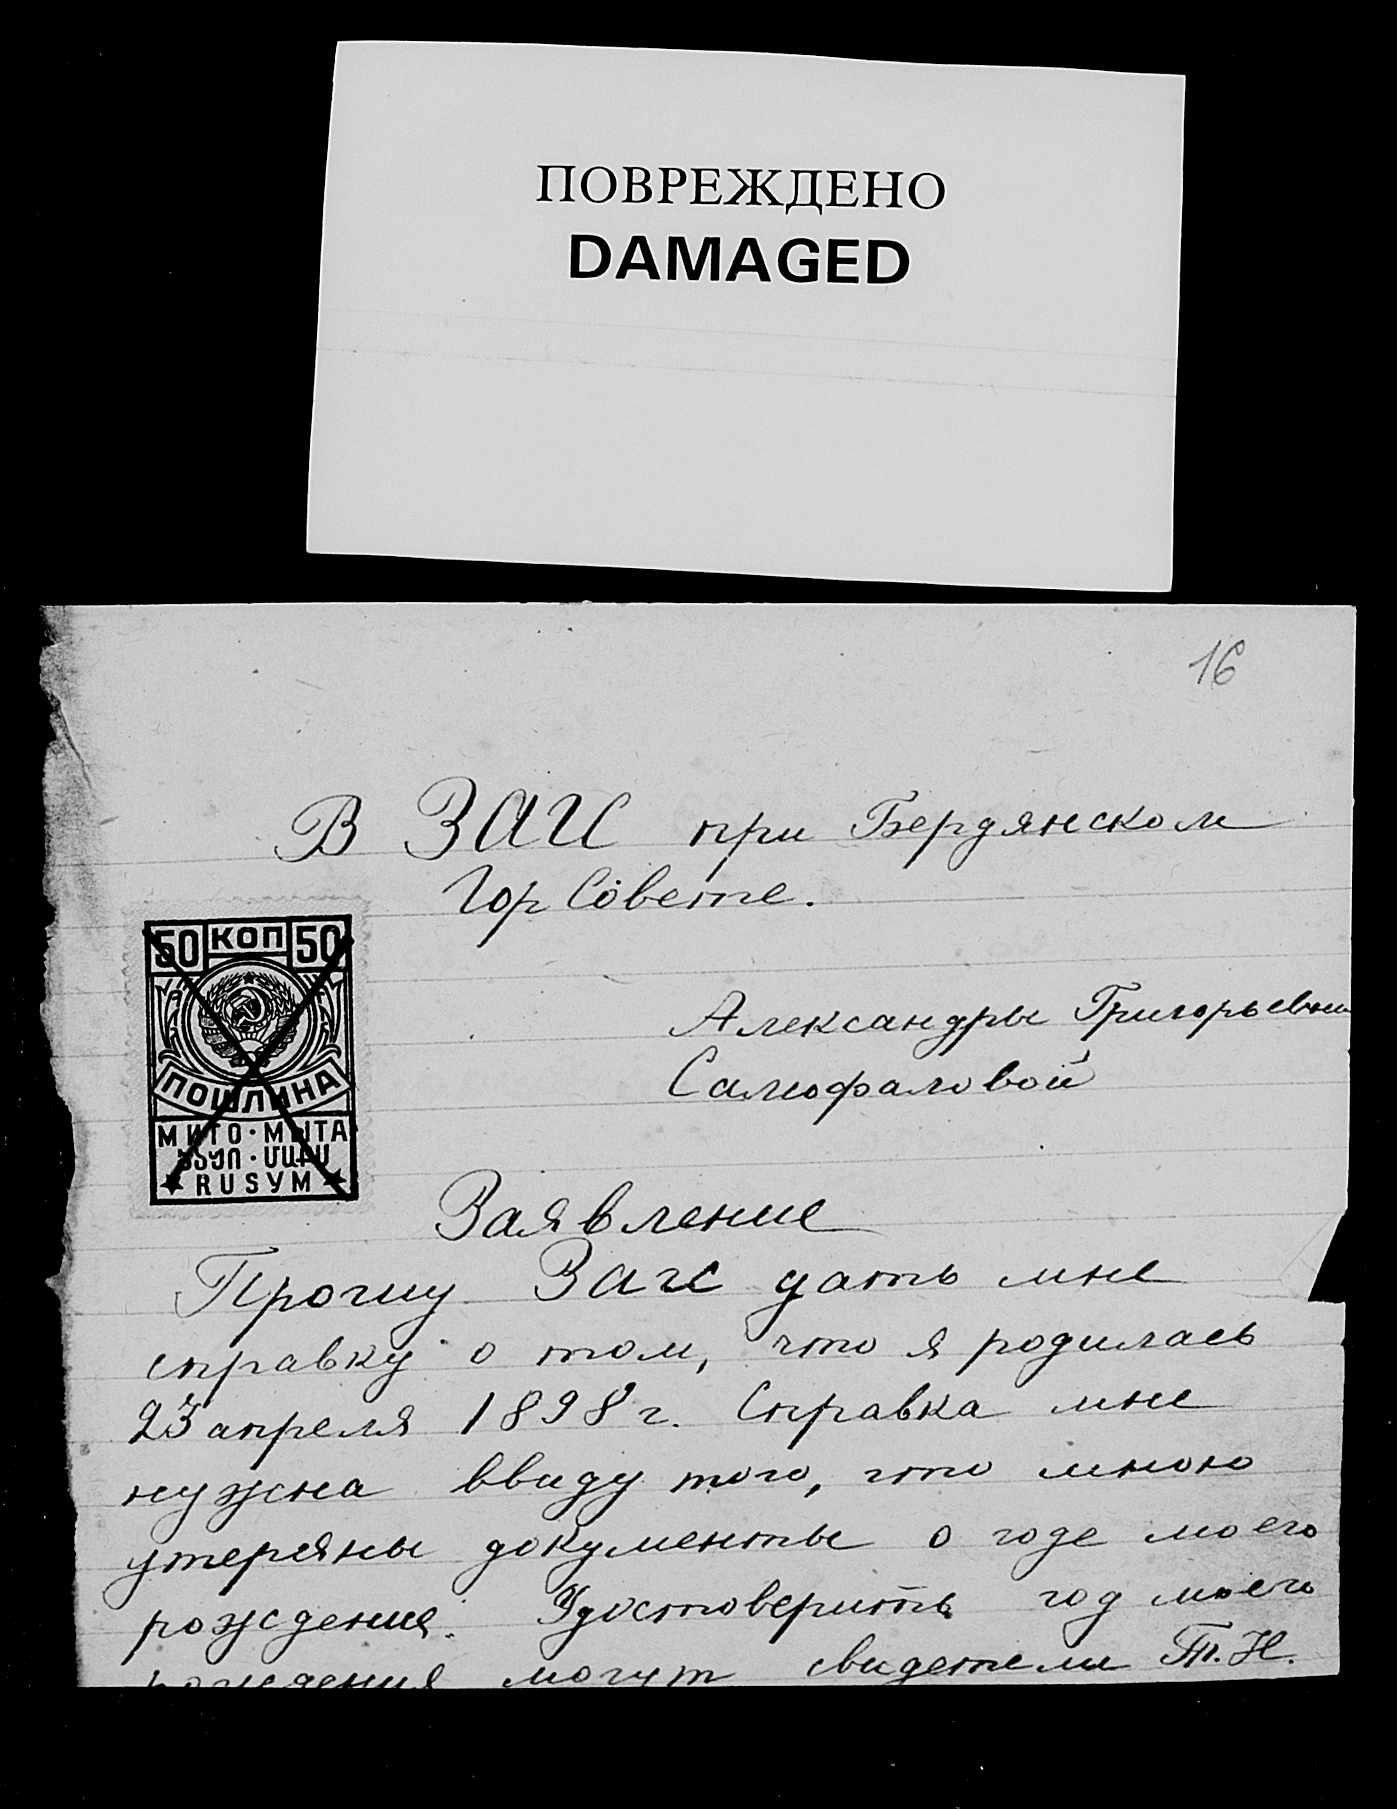 ПОВРЕЖДЕНО
DAMAGED
16
В ЗАГС при Бердянском
Гор Совете.
50 КОП 50
ПОШЛИНА
МИТО · МЫТА
ԲԱԺԻ · ՄԱՔՍ
RUSУM
Александры Григорьевны
Самофаловой
Заявление
Прошу Загс дать мне
справку о том, что я родилась
23 апреля 1898 г. Справка мне
нужна ввиду того, что мною
утеряны документы о годе моего
рождения. Удостоверить год моего
рождения могут свидетели Т. Н.